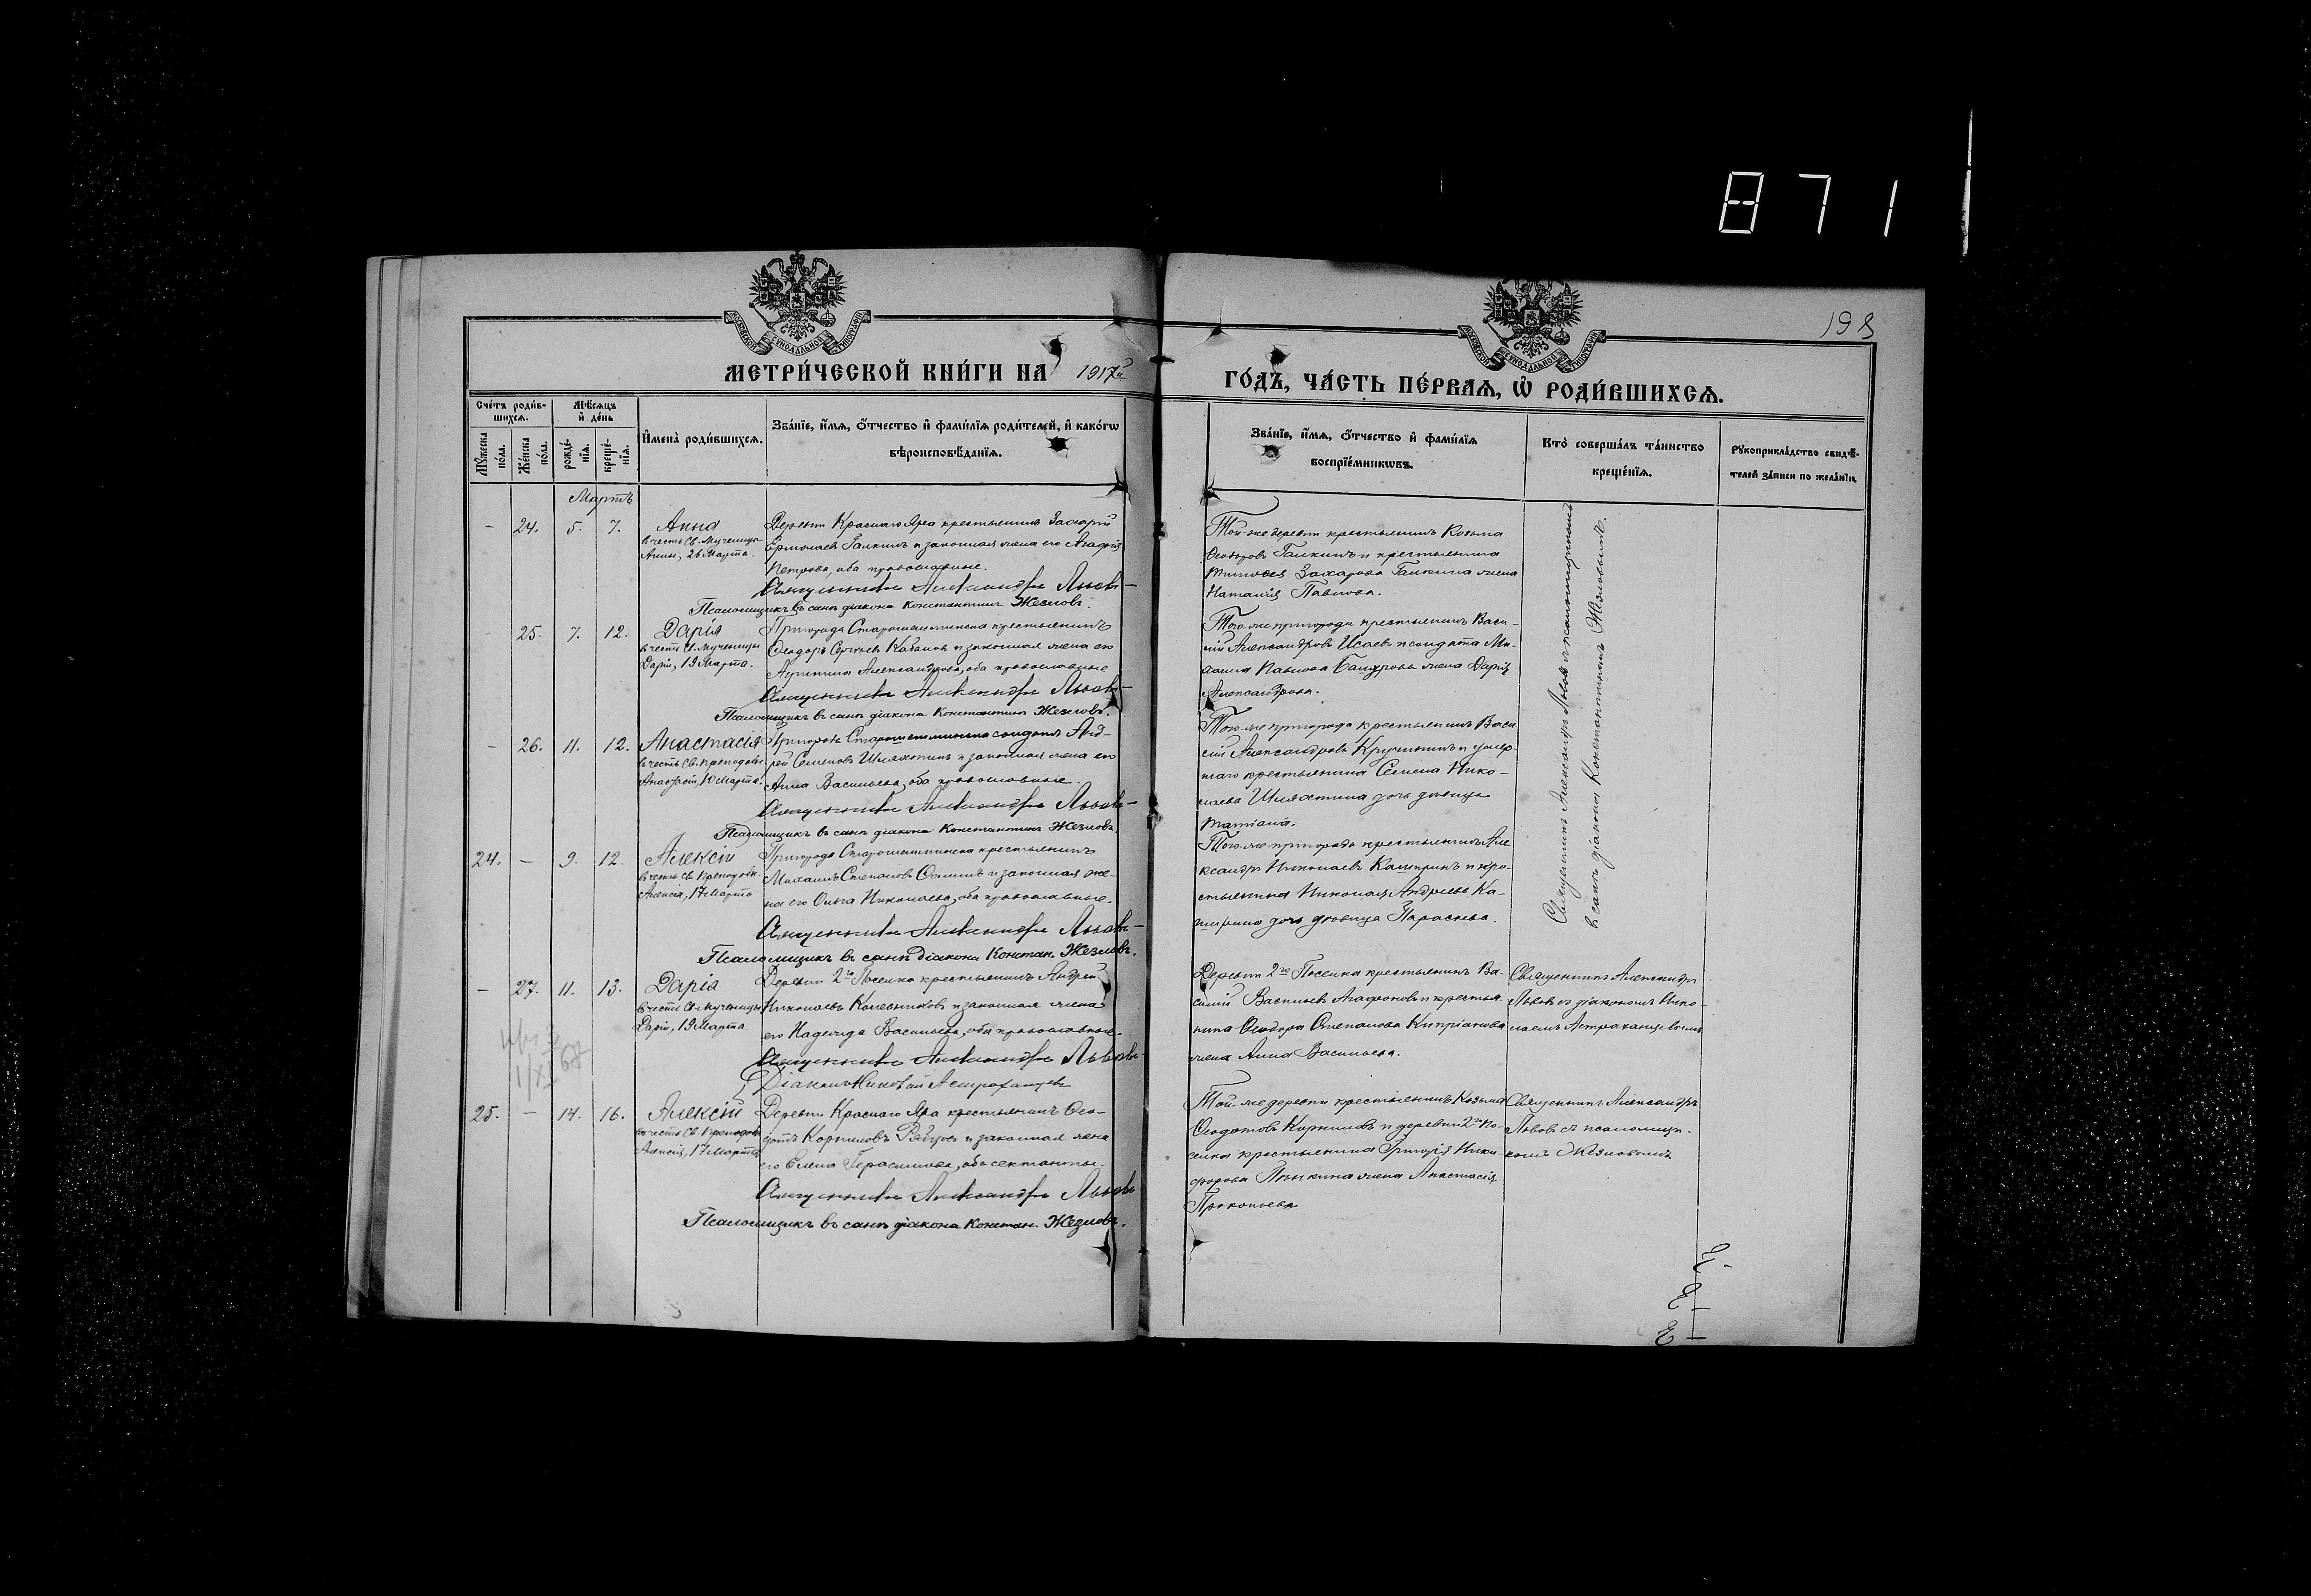 8711
198
МЕТРИ́ЧЕСКОЙ КНИ́ГИ НА 1917й
ГО́ДЪ, ЧА́СТЬ ПЕ́РВАѦ, Ѿ РОДИ́ВШИХСѦ.
Сче́тъ роди́вшихсѧ.
Мꙋ́жеска по́ла.
Же́нска по́ла.
Мѣ́сѧцъ и҆ де́нь
рожде́нїѧ.
креще́нїѧ.
И҆мена̀ роди́вшихсѧ.
Зва́нїе, и҆́мѧ, ѻ҆́тчество и҆ фами́лїѧ роди́телей, и҆ како́гѡ
вѣроисповѣ́данїѧ.
Зва́нїе, и҆́мѧ, ѻ҆́тчество и҆ фами́лїѧ
воспрїе́мникѡвъ.
Кто̀ соверша́лъ та́инство
креще́нїѧ.
Рꙋкоприкла́дство свидѣ́-
телей за́писи по жела́нїю.
Мартъ
– 24. 5. 7. Анна
въ честь Св. Мученицы
Анны, 26 Марта.
Деревни Краснаго Яра крестьянинъ Захарій
Ермолаевъ Галкинъ и законная жена его Агафія
Петрова, оба православные.
Священникъ Александръ Львовъ
Псаломщикъ въ санѣ діакона Константинъ Жезловъ.
Той-же деревни крестьянинъ Козьма
Ѳеодоровъ Галкинъ и крестьянина
Тимоѳея Захарова Галкина жена
Наталія Павлова.
Священникъ Александръ Львовъ и псаломщикомъ
въ санѣ діакона Константиномъ Жезловымъ.
– 25. 7. 12. Дарія
въ честь Св. Мученицы
Даріи, 19 Марта.
Пригорода Старошешминска крестьянинъ
Ѳеодоръ Сергѣевъ Кабановъ и законная жена его
Александрова, оба православные
Священникъ Александръ Львовъ
Псаломщикъ въ санѣ діакона Константинъ Жезловъ.
Того-же пригорода крестьянинъ Васи-
лій Александровъ Исаевъ и солдата Ми-
хаила Павлова жена Дарія
Александрова.
– 26. 11. 12. Анастасія
въ честь Св. Преподобн.
Анастасіи, 10 Марта.
Пригорода Старошешминска солдатъ Анд-
рей Семеновъ Шляхтинъ и законная жена его
Анна Васильева, оба православные.
Священникъ Александръ Львовъ
Псаломщикъ въ санѣ діакона Константинъ Жезловъ
Того-же пригорода крестьянинъ Васи-
лій Александровъ Кручининъ и умер-
шаго крестьянина Семена Нико-
лаева Шляхтина дочь дѣвица
24. – 9. 12. Алексій
въ честь Св. Преподобн.
Алексія, 17 Марта
Пригорода Старошешминска крестьянинъ
Михаилъ Степановъ и законная же-
на его Ольга Николаева, оба православные.
Священникъ Александръ Львовъ
Псаломщикъ въ санѣ діакона Констан. Жезловъ.
Того-же пригорода крестьянинъ Але-
ксандръ Николаевъ Каширинъ и кре-
стьянина Николая Андреева Ка-
ширина дочь дѣвица Параскева.
– 27. 11. 13. Дарія
въ честь Св. Мученицы
Даріи, 19 Марта.
Деревни 2го Поселка крестьянинъ Андрей
Николаевъ Колесниковъ и законная жена
его Надежда Васильева, оба православные.
Священникъ Александръ Львовъ
Діаконъ Николай Астраханцевъ
Деревни 2го Поселка крестьянинъ Ва-
силій Васильевъ Агафоновъ и крестья-
нина Ѳеодора Степанова Кипріанова
жена Анна Васильева.
Священникъ Александръ
Львовъ съ діакономъ Нико-
лаемъ Астраханцевымъ
25. – 14. 16. Алексій
въ честь Св. Преподобн
Алексія, 17 Марта
Деревни Краснаго Яра крестьянинъ Ѳео-
дотъ Корниловъ и законная жена
его Елена Герасимова, оба сектанты.
Священникъ Александръ Львовъ
Псаломщикъ въ санѣ діакона Констан. Жезловъ.
Той-же деревни крестьянинъ Козьма
Ѳеодотовъ Корниловъ и деревни 2го По-
селка крестьянина Григорія Ники-
форова жена Анастасія
Прокопьева
Священникъ Александръ
Львовъ съ псаломщи-
комъ Жезловымъ